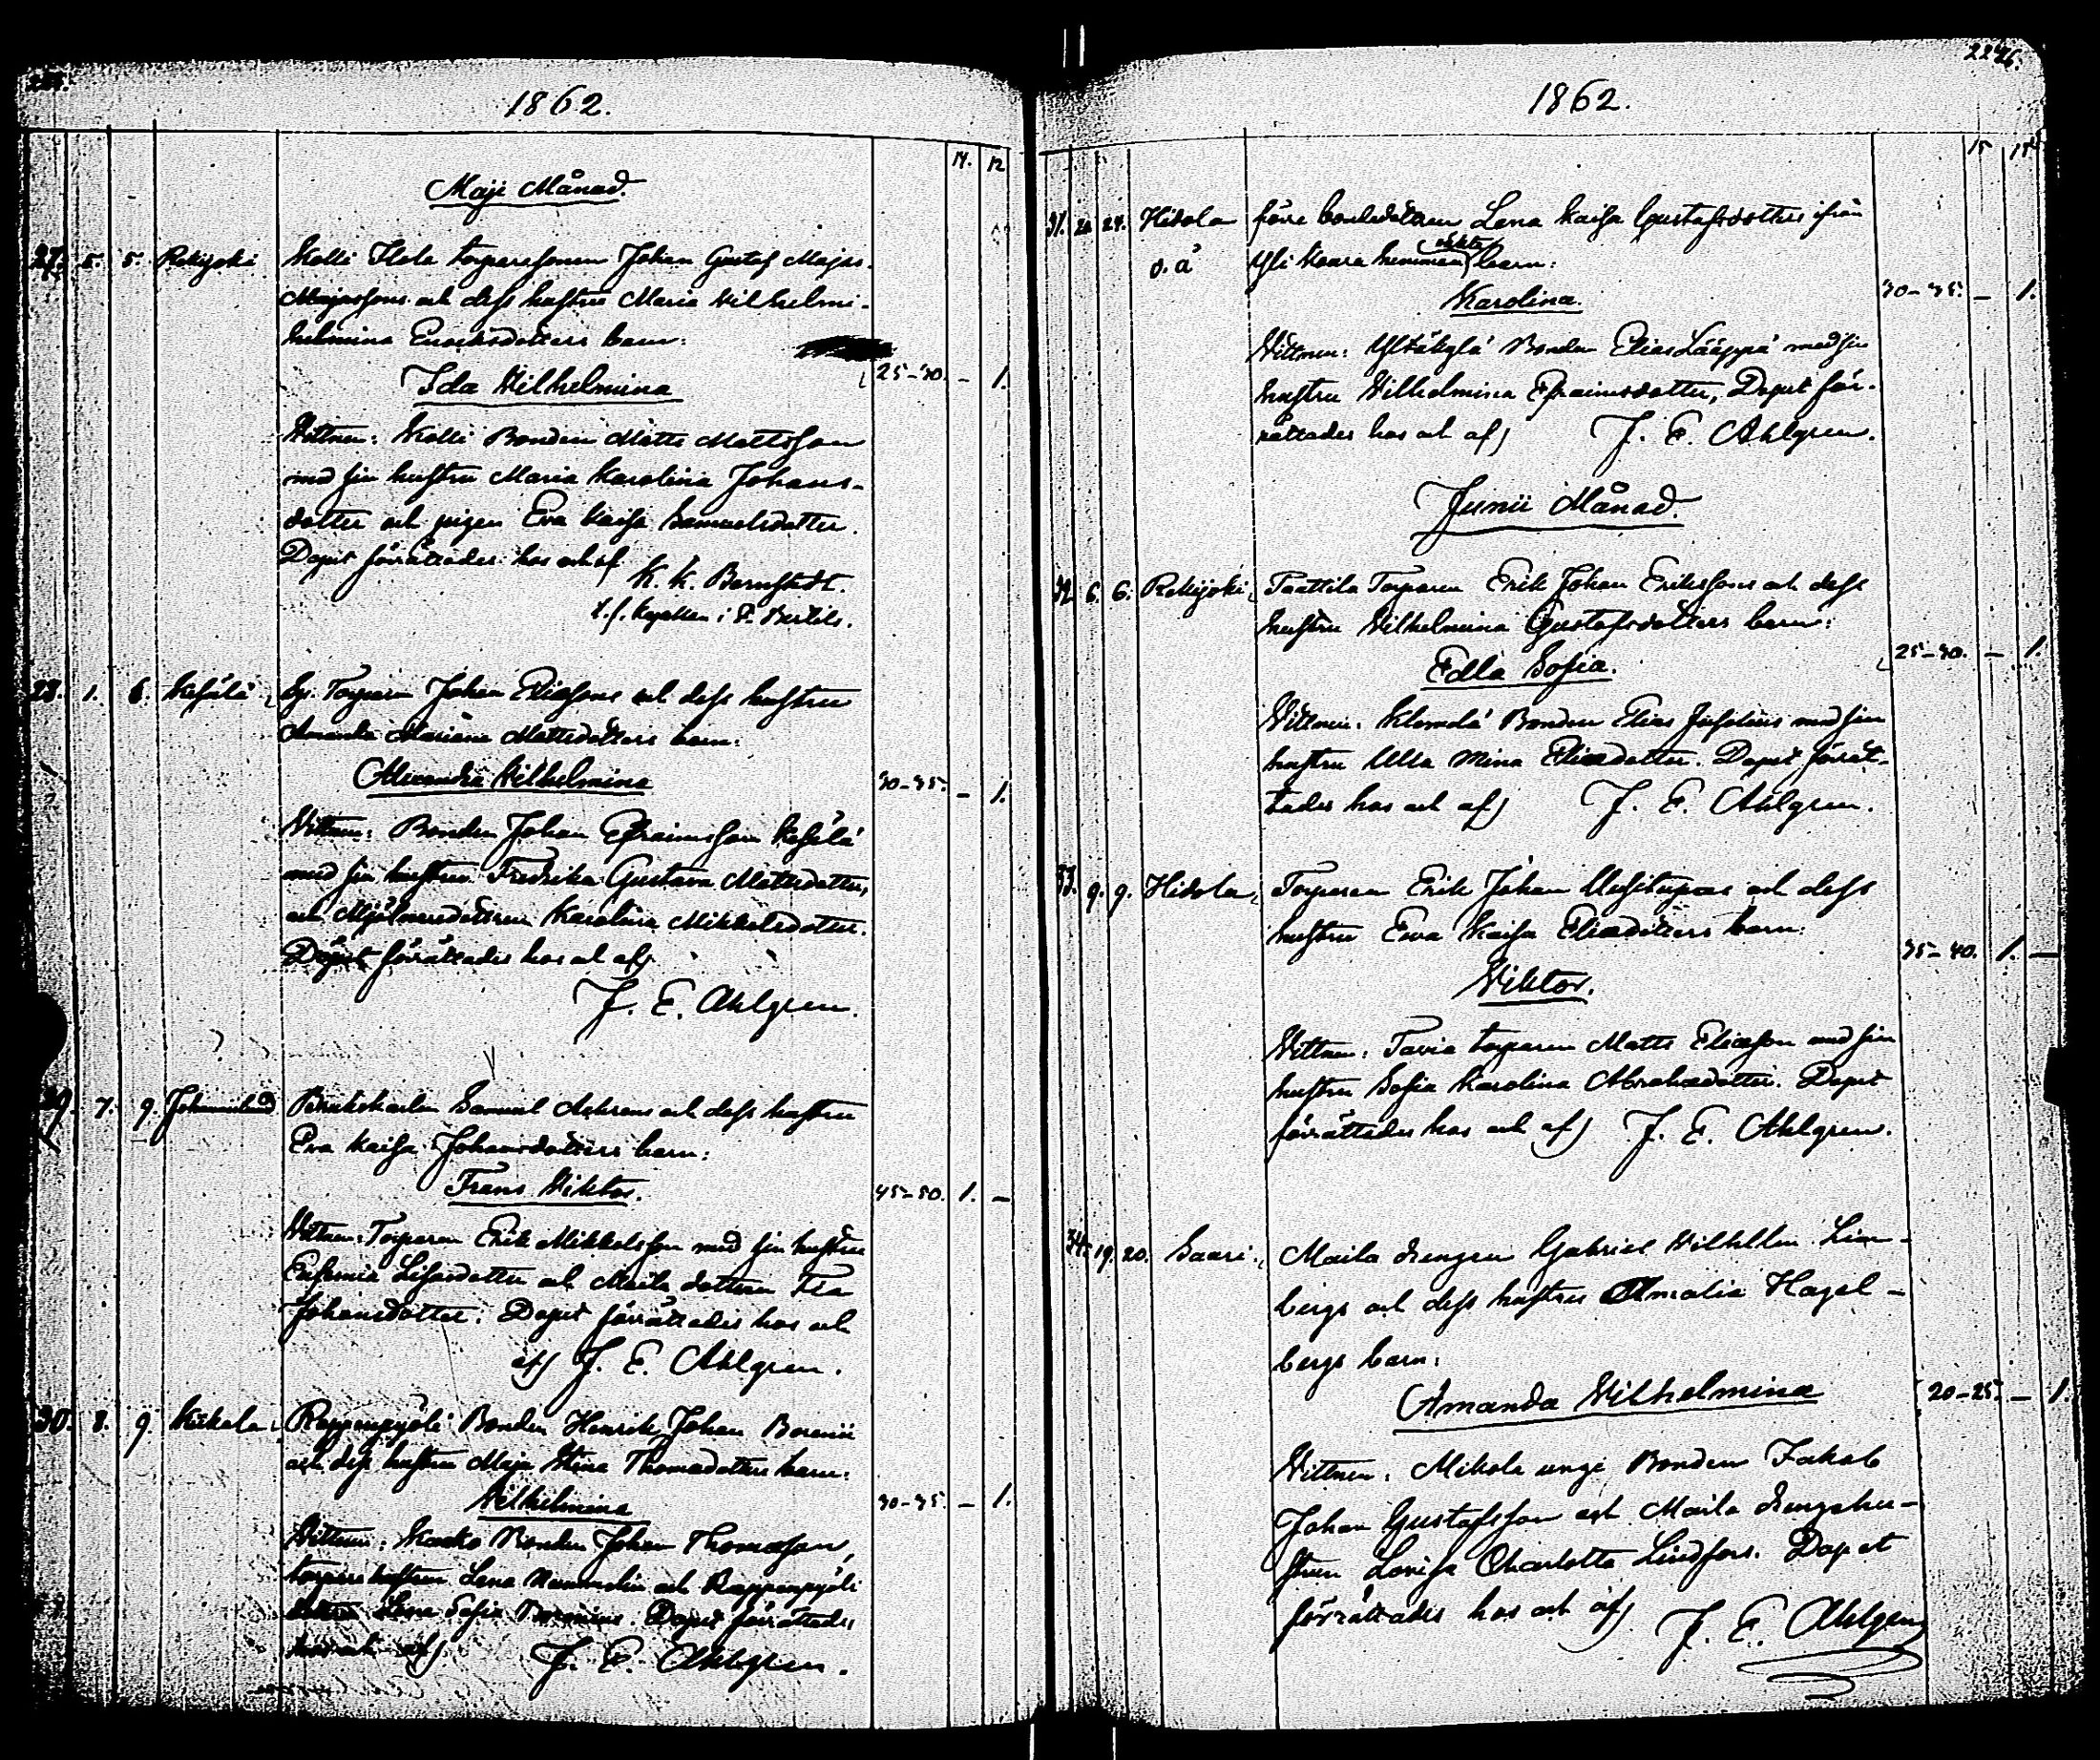 1862.
14. 12
Maji Månad.
27. 5. 5. Rekijoki Kolli Ilola torparesonen Johan Gustaf Majas-
Majassons och dess hustru Maria Wilhelmi-
helmina Enoksdotters barn:
Ida Wilhelmina 25-30. - 1.
Vittnen: Kolli Bonden Matts Mattsson
med sin hustru Maria Karolina Johans-
dotter och pigan Eva Kaisa Samuelsdotter.
Dopet förrättades hos och af
K. K. Bernstedt.
t.f. Kapellan i S. Bertils.
28. 1. 6. Kesälä Torparen Johan Eliassons och dess hustru
Amanda Mariana Mattsdotters barn:
Alexandra Wilhelmina 30-35. - 1.
Vittnen: Bonden Johan Efraimsson Kesälä
med sin hustru Fredrika Gustava Mattsdotter,
och Mjölnaredottren Karolina Mikkelsdotter.
Dopet förrättades hos och af
J. E. Ahlgren.
29. 7. 9. Johannislund Brukskarlen Samuel och dess hustru
Eva Kaisa Johansdotters barn:
Frans Viktor. 45-50. 1. -
Vittnen: Torparen Erik Mikkelsson med sin hustru
Eufemia och dottren
Johansdotter. Dopet förrättades hos och
af J. E. Ahlgren.
30. 8. 9. Kiikala Rappenpyöli Bonden Henrik Johan Borenii
och dess hustru Maja Stina Thomasdotters barn:
Wilhelmina 30-35. - 1.
Vittnen: Bonden Johan Thomasson,
torparehustrun Lena och Rappenpyöli
dottren Lena Sofia Borenius. Dopet förrättades
hos och af J. E. Ahlgren.
1862.
15
31. 20. 24. Hidola förre bondedottren Lena Kaisa Gustafsdotters ifrån
o. ä
Yli Kaara hemman oäkta barn:
Karolina. 30-35. - 1.
Vittnen: Yltäkylä Bonden Elias Lääppä med sin
hustru Wilhelmina Efraimsdotter, Dopet för-
rättades hos och af J. E. Ahlgren.
Junii Månad.
32 6. 6. Rekijoki Taattila Torparen Erik Johan Erikssons och dess
hustru Wilhelmina Gustafsdotters barn:
Edla Sofia. 25-30. - 1.
Vittnen: Klemelä Bonden Elias Juselius med sin
hustru Ulla Mina Eliasdotter. Dopet förrät-
tades hos och af J. E. Ahlgren.
33. 9. 9. Hidola Torparen Erik Johan Uusitupas och dess
hustru Ewa Kaisa Eliasdotters barn:
Viktor. 35-40. 1. -
Vittnen: Tavia torparen Matts Eliasson med sin
hustru Sofia Karolina Abrahamsdotter. Dopet
förrättades hos och af J. E. Ahlgren.
34. 19. 20. Saari Maila drengen Gabriel Wilhelm Lin-
bergs och dess hustrus Amalia Hagel-
bergs barn:
Amanda Wilhelmina 20-25. - 1.
Vittnen: Mikola unge Bonden Jakob
Johan Gustafsson och Maila drengshu-
strun Lovisa Charlotta Lindfors. Dopet
förrättades hos och af J. E. Ahlgren